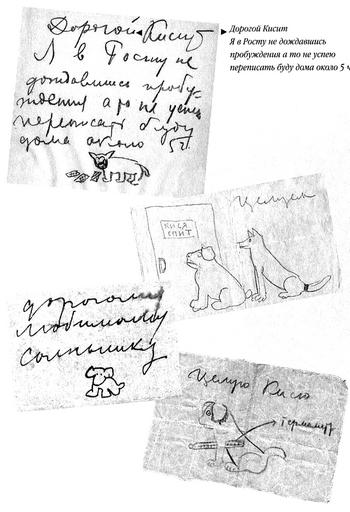 Дорогой Кисит
Я в Росту не
дождавшись пробу-
ждения а то не успею
переписать буду
дома около 5 ч.
Дорогой Кисит
Я в Росту не дождавшись
пробуждения а то не успею
переписать буду дома около 5 ч
Целуем
КИСА
СПИТ
дорогому
любимому
солнышку
Целую Кисю
термометр